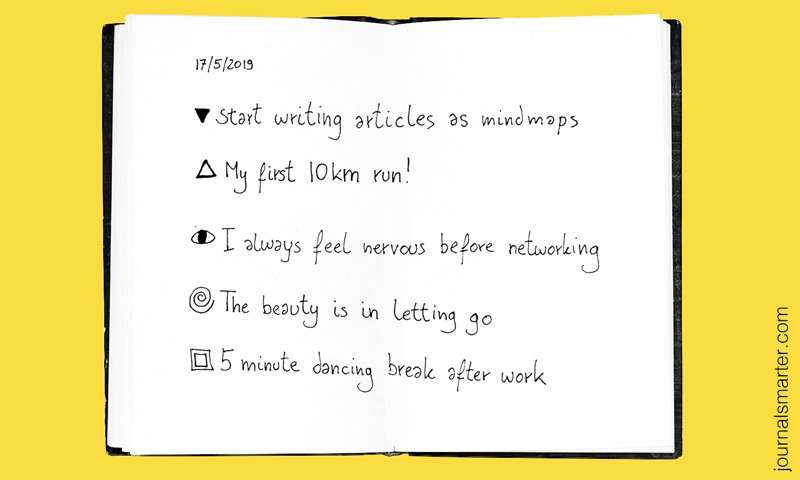 17/5/2019
Start writing articles as mindmaps
My first 10km run!
I always feel nervous before networking
The beauty is in letting go
5 minute dancing break after work
journalsmarter.com